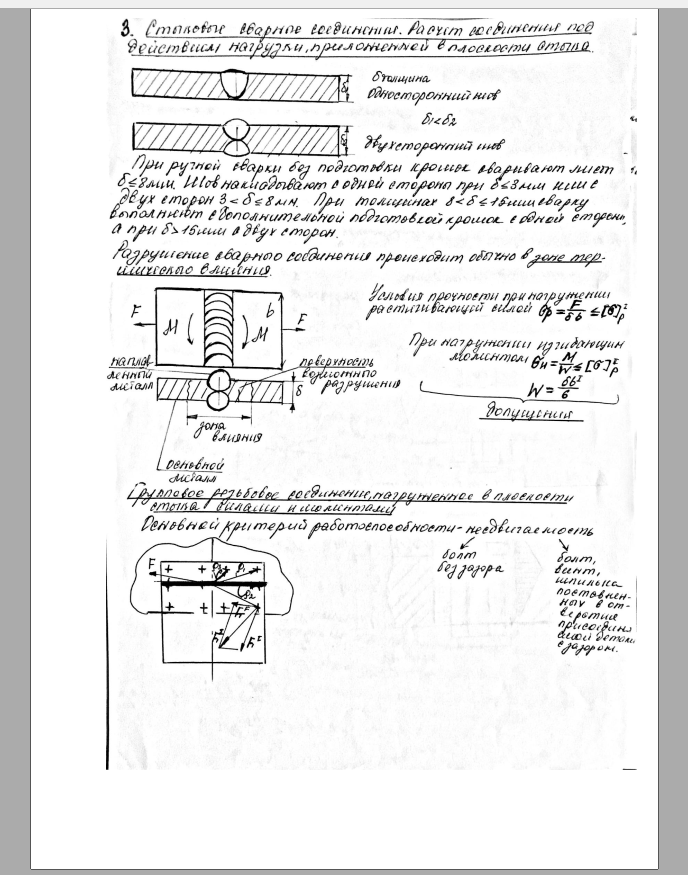 3. Стыковые сварное соединения. Расчет соединения под
действием нагрузки, приложенной в плоскости стыка.
δ толщина
односторонний шов
δ
δ1<δ2
двухсторонний шов
δ
При ручной сварки без подготовки кромок сваривают лист
δ≤8мм. Шов накладывают с одной стороны при δ≤3мм или с
двух сторон 3<δ≤8мм. При толщинах 8<δ≤16мм сварку
выполняют с дополнительной подготовкой кромок с одной стороны,
а при δ>16мм с двух сторон.
Разрушение сварного соединения происходит обычно в зоне тер-
мического влияния.
F
M
M
b
F
наплав-
ленный
металл
поверхность
возможного
разрушения
δ
зона
влияния
основной
металл
Условия прочности при нагружении
растягивающей силой σр = F/δb ≤ [σ]'р
При нагружении изгибающим
моментом σи = M/W ≤ [σ]'р
W = δb²/6
допущения
Групповое резьбовое соединение, нагруженное в плоскости
стыка силами и моментами
Основной критерий работоспособности - несдвигаемость
болт
без зазора
болт,
винт,
шпилька
поставлен-
ных в от-
верстия
присоедин
мой детали
с зазором.
F
ρ1
ρ2